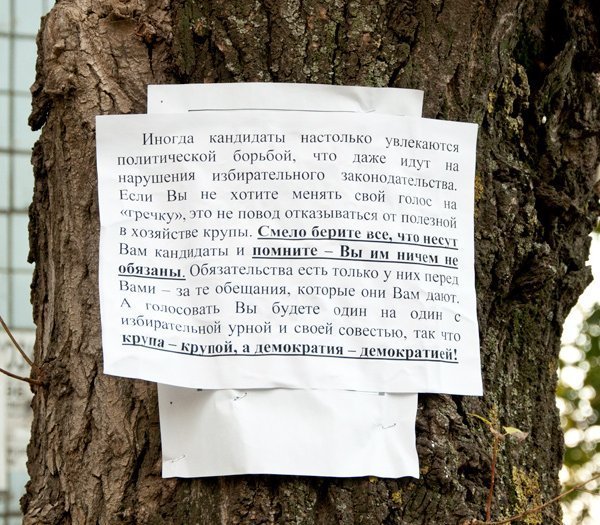 Иногда кандидаты настолько увлекаются
политической борьбой, что даже идут на
нарушения избирательного законодательства.
Если Вы не хотите менять свой голос на
«гречку», это не повод отказываться от полезной
в хозяйстве крупы. Смело берите все, что несут
Вам кандидаты и помните – Вы им ничем не
обязаны. Обязательства есть только у них перед
Вами – за те обещания, которые они Вам дают.
А голосовать Вы будете один на один с
избирательной урной и своей совестью, так что
крупа – крупой, а демократия – демократией!